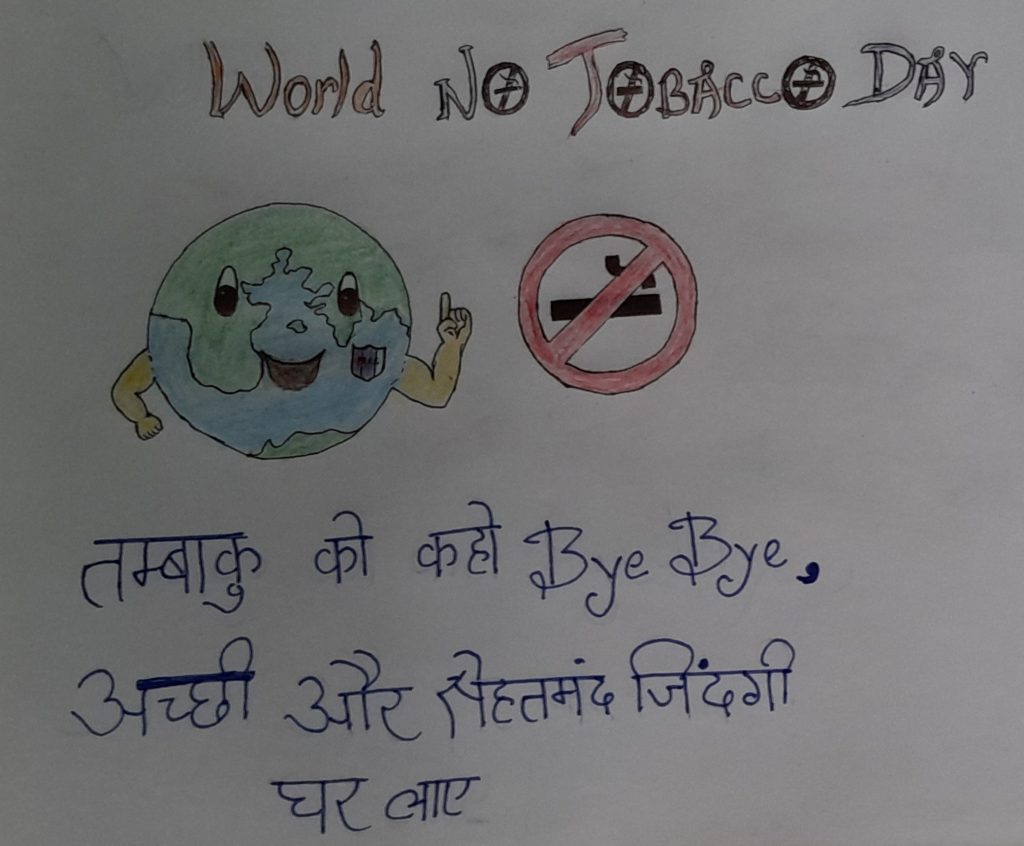 World NO TOBACCO DAY
तम्बाकु को कहो Bye Bye,
अच्छी और सेहतमंद जिंदगी
घर लाए